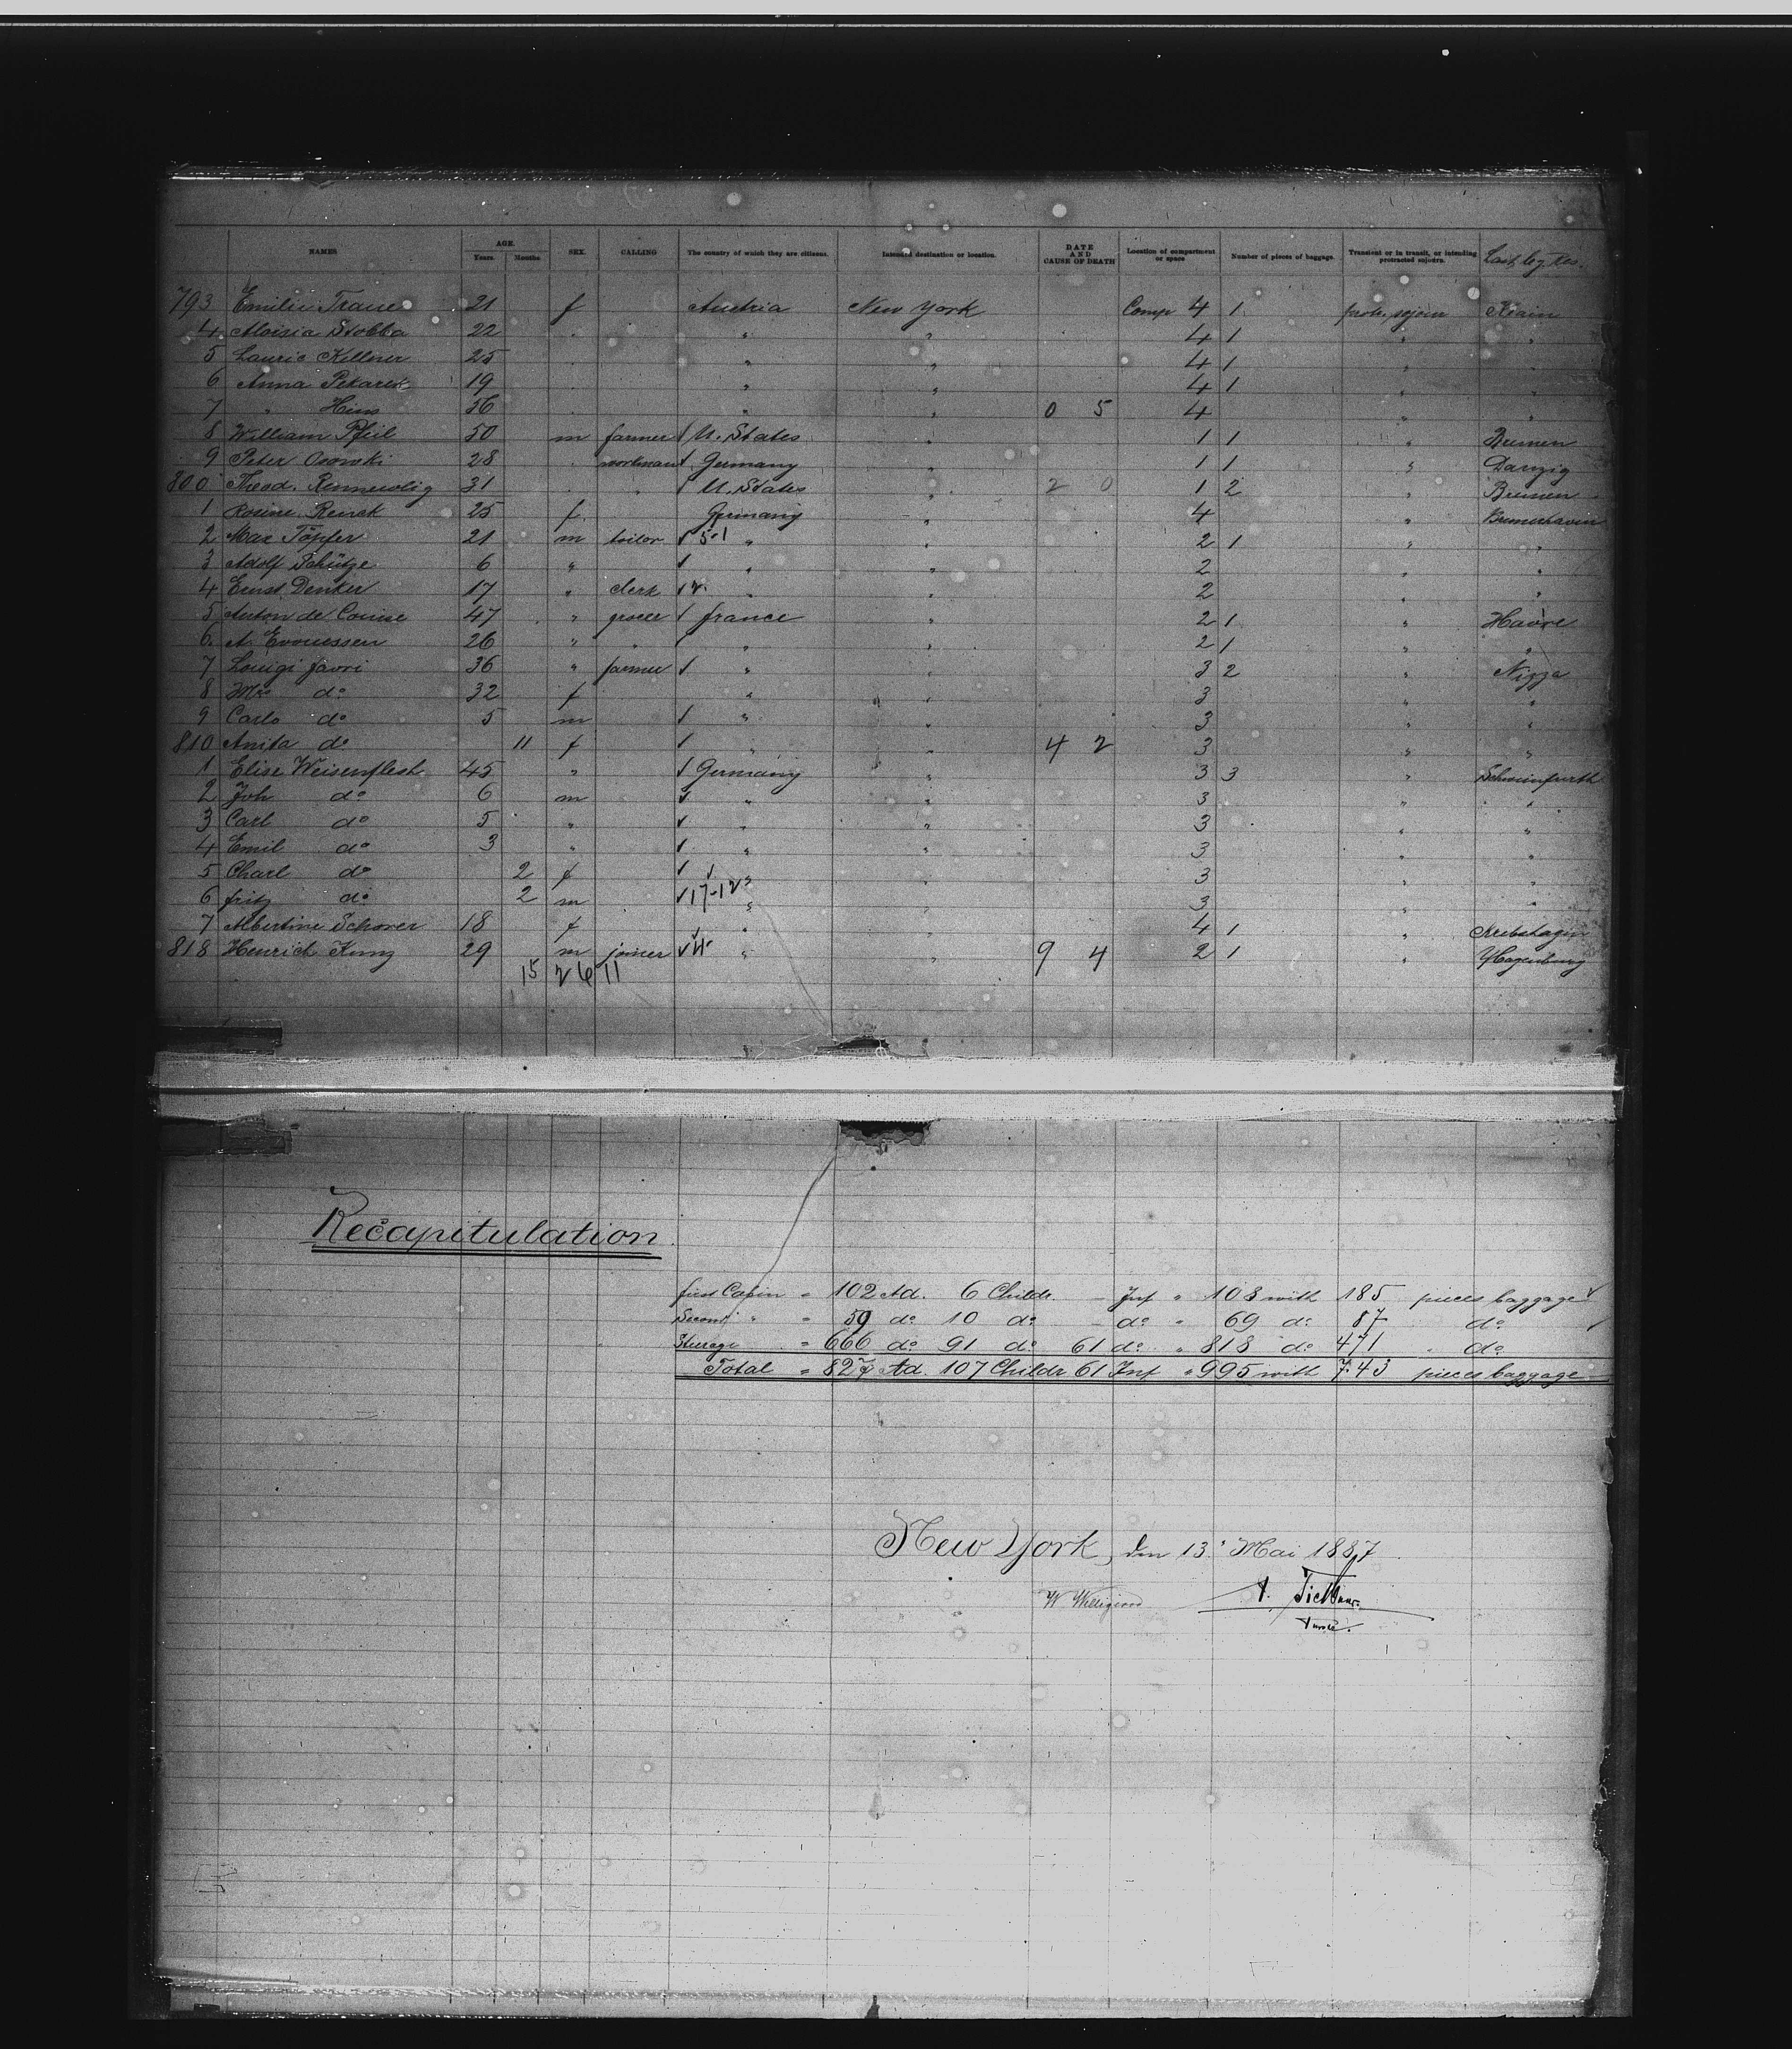 NAMES AGE. Years. Months. SEX. CALLING The country of which they are citizens. Intended destination or location. DATE AND CAUSE OF DEATH Location of compartment or space Number of pieces of baggage. Transient or in transit, or intending protracted sojourn. Last
793 Emilie 21 f Austria New York Comp 4 1 protr. sojourn
4 Aloisia 22 " " " 4 1 " "
5 Kellner 25 " " " 4 1 " "
6 Anna Pekarek 19 " " " 4 1 " "
7 " Heins 56 " " " 0 5 4 " "
8 William Pfeil 50 m farmer U. States " 1 1 " Bremen
9 Peter Osowki 28 " workman Germany " 1 1 " Danzig
800 Theod. 31 " " U. States " 2 0 1 2 " Bremen
1 Rosine Renck 25 f Germany " 4 " Bremerhaven
2 Max Töpfer 21 m tailor 5-1 " " 2 1 " "
3 Adolf Schütze 6 " " " 2 " "
4 Ernst Denker 17 " clerk " " 2 " "
5 Anton de 47 " grocer france " 2 1 " Havre
6. A. 26 " " " " 2 1 " "
7 Louigi Favri 36 " farmer " " 3 2 " Nizza
8 Mrs do 32 f " " 3 " "
9 Carlo do 5 m " " 3 " "
810 Anita do 11 f " " 4 2 3 " "
1 Elise Weisenflesh 45 " Germany " 3 3 " Schweinfurth
2 Joh do 6 m " " 3 " "
3 Carl do 5 " " " 3 " "
4 Emil do 3 " " " 3 " "
5 Charl do 2 f " " 3 " "
6 fritz do 2 m 17-12 " " 3 " "
7 Albertine Schorer 18 f " " 4 1 "
818 Henrich Kunz 29 m joiner 4 " " 9 4 2 1 " Hagenburg
15 26 11
Recapitulation
first Cabin = 102 Ad. 6 Childr. - Inf " 108 with 185 pieces baggage
Second " = 59 do 10 do - do " 69 do 87 do
Steerage = 666 do 91 do 61 do " 818 do 471 " do
Total = 827 Ad. 107 Childr 61 Inf " 995 with 743 pieces baggage
New York, den 13. Mai 1887
W Willigerod